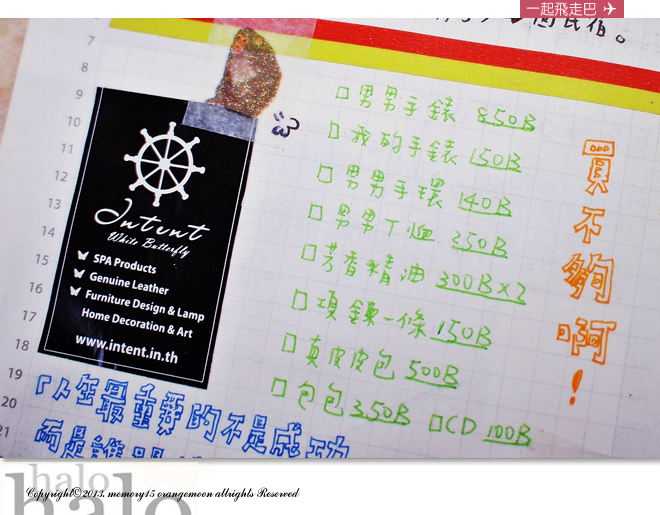 一起飛走巴
7
8
9
10
11
12
13
14
15
16
17
18
19
20
21
Intent
White Butterfly
SPA Products
Genuine Leather
Furniture Design & Lamp
Home Decoration & Art
www.intent.in.th
男男手錶 850B
我的手錶 150B
男男手環 140B
男男T恤 250B
芳香精油 300B x 2
項鍊一條 150B
真皮皮包 500B
包包 350B CD 100B
買不夠啊!
「人生最重要的不是成功
而是
halo
halo
Copyright© 2013. memory15 orangemoon allrights Reserved